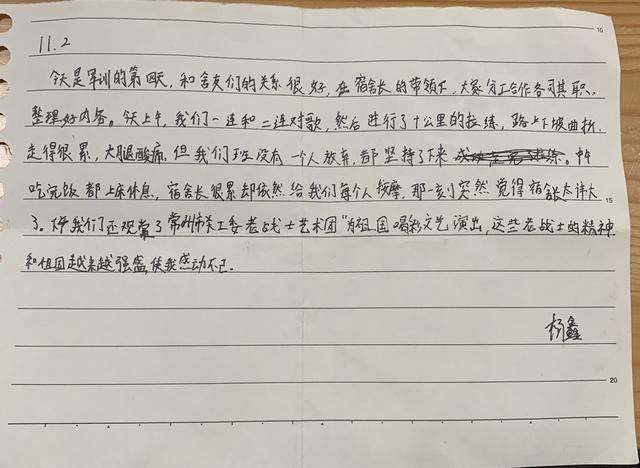 10
11.2
今天是军训的第四天,和舍友们的关系很好,在宿舍长的带领下,大家分工合作各司其职,
整理好内务。今天上午,我们一连和二连对歌,然后进行了十公里的拉练,路上下坡曲折,
走得很累,大腿酸痛,但我们班没有一个人放弃,都坚持了下来。中午
吃完饭都上床休息,宿舍长很累却依然给我们每个人按摩,那一刻突然觉得宿舍长太伟大
15
了。下午我们还观赏了常州市关工委老战士艺术团“为祖国喝彩文艺演出,这些老战士的精神
和祖国越来越强盛,使我感动不已.
杨鑫
20